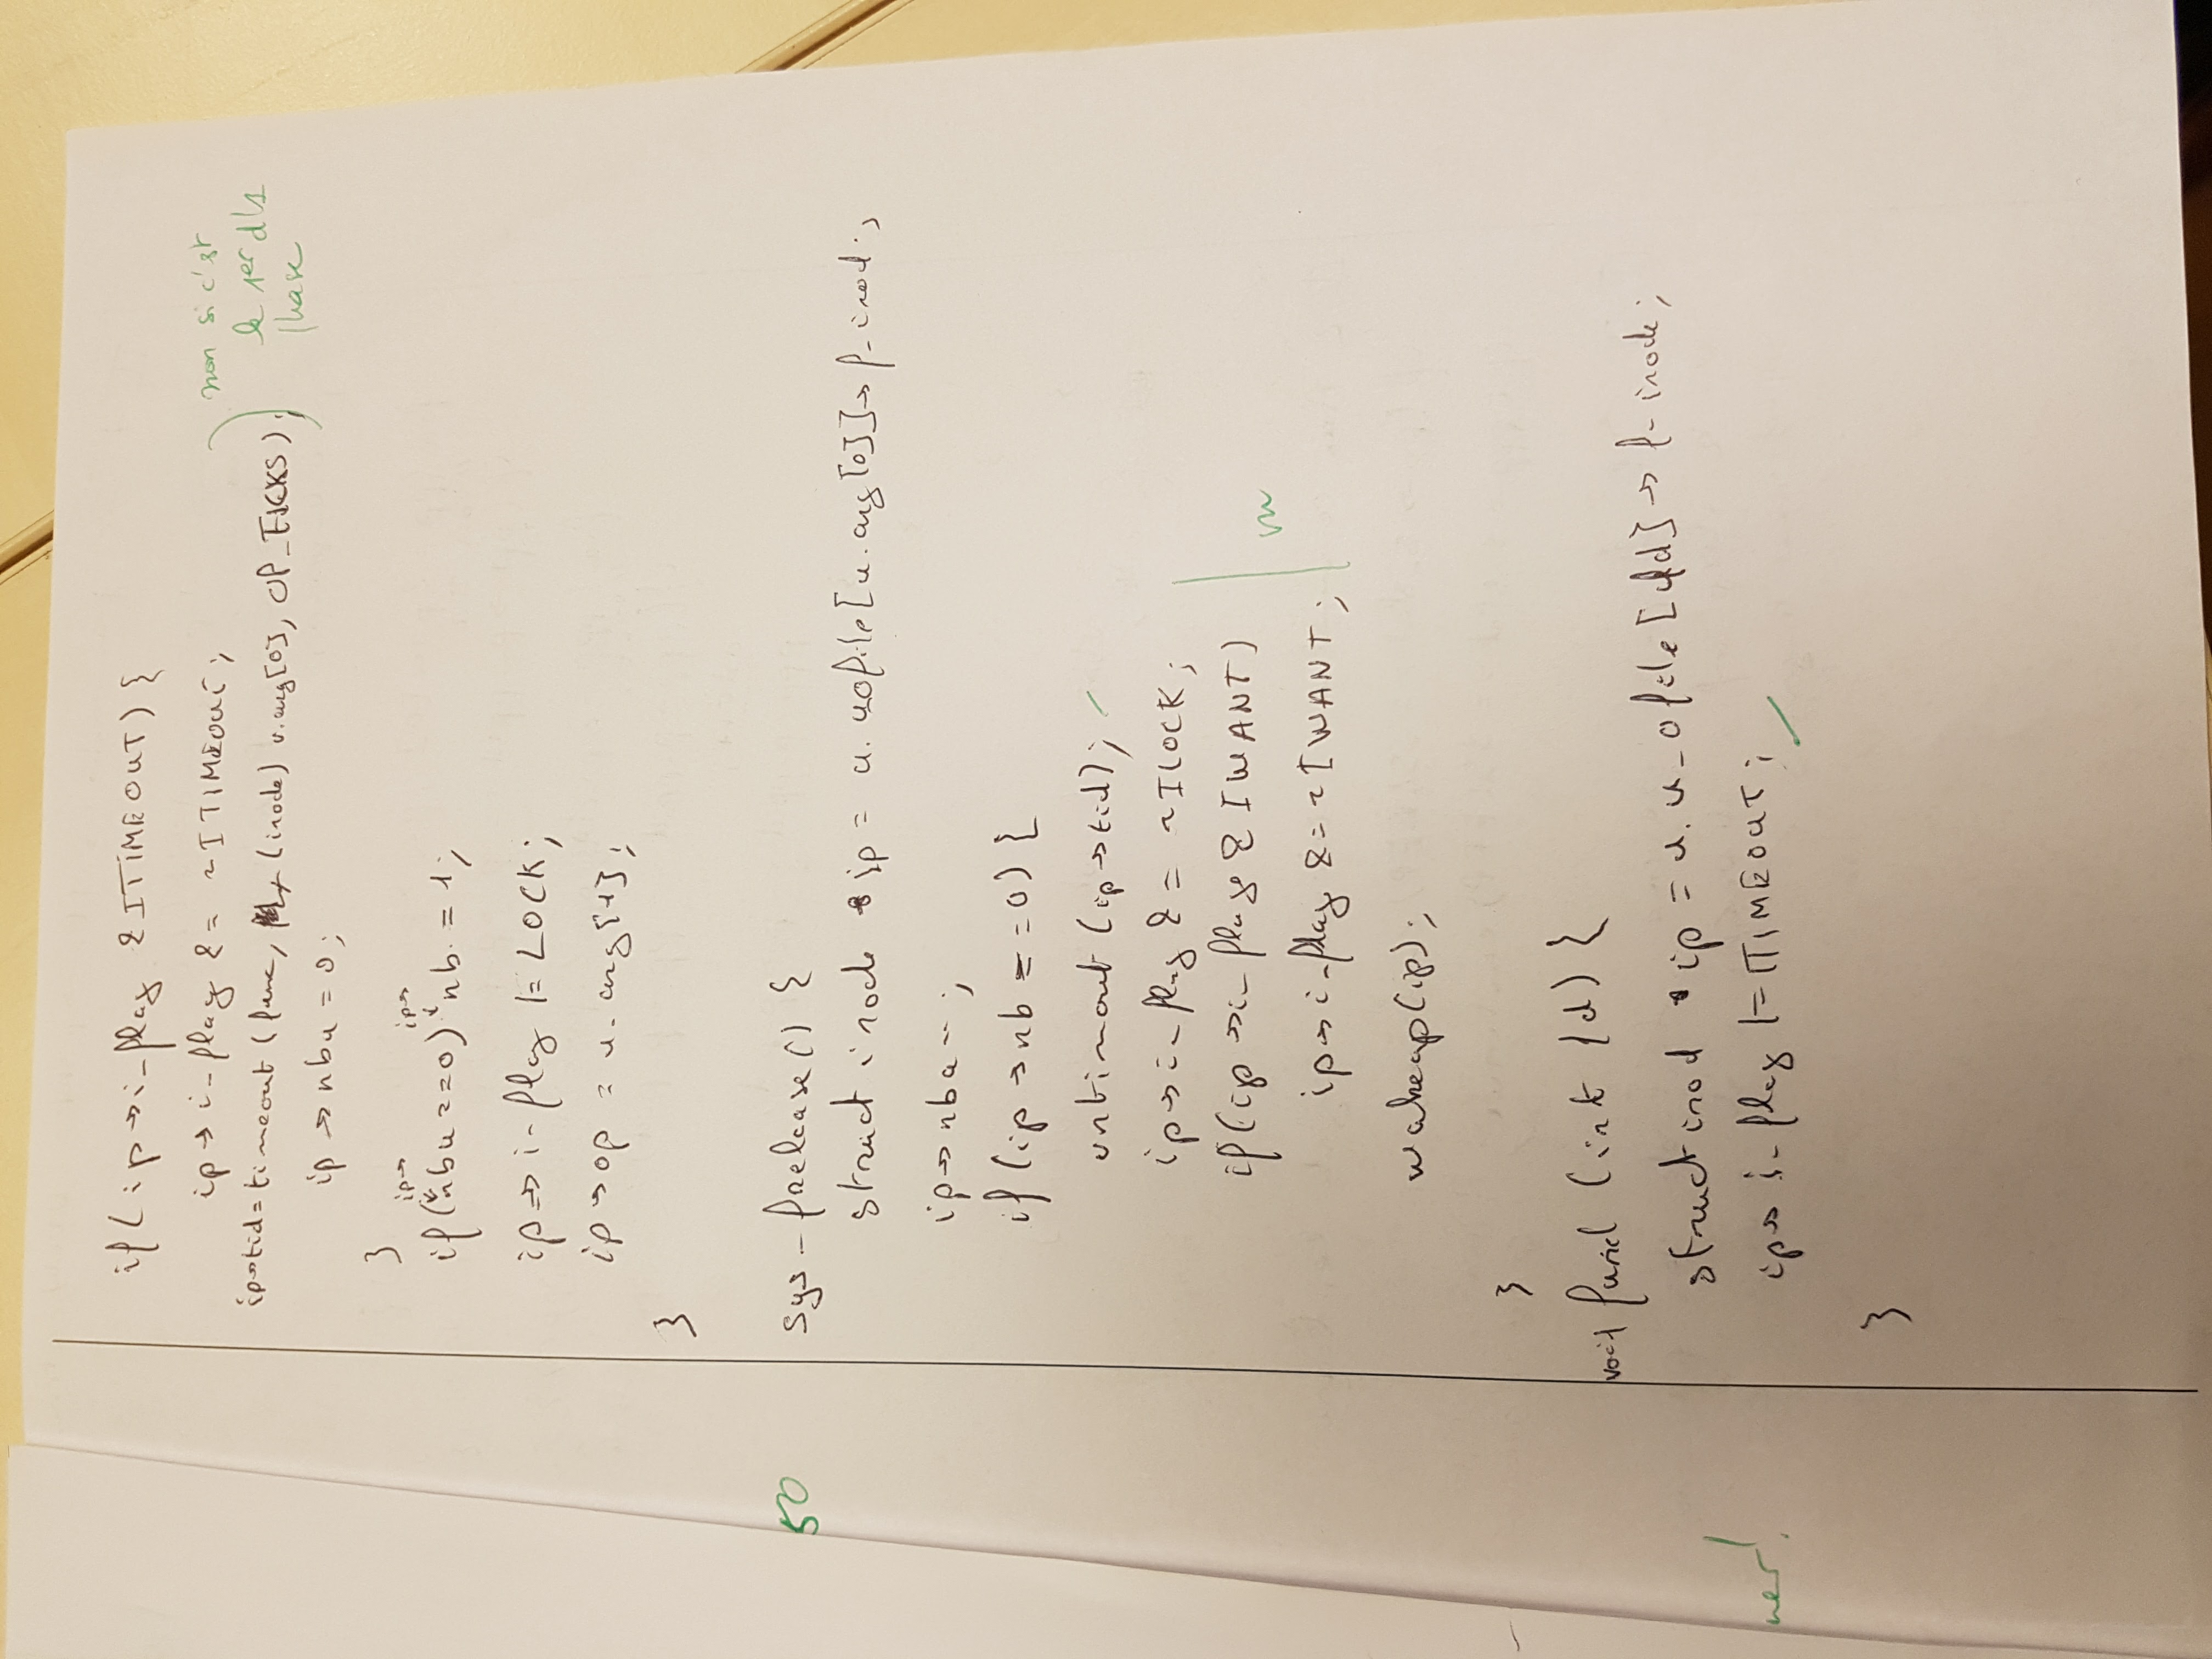 if (ip->i_flag & ITIMEOUT) {
ip->i_flag &= ~ITIMEOUT;
non si c'est
le 1er d'1
phase
ip->tid = timeout (func, (inode) u.arg[0], OP_TICKS);
ip->nbu = 0;
}
ip-> ip->
if (nbu==0) nb = 1;
ip->i-flag |= LOCK;
ip->op = u.arg[1];
}
50
sys_frelease() {
struct inode *ip = u.uofile[u.arg[0]]->f_inod;
ip->nbu--;
if (ip->nb == 0) {
untimout (ip->tid);
ip->i_flag &= ~ILOCK;
if (ip->i_flag & IWANT)
ip->i_flag &= ~IWANT;
wakeup(ip);
}
void func (int fd) {
struct inod *ip = u.u_ofile[fd]->f_inode;
ip->i_flag |= ITIMEOUT;
ner!
}